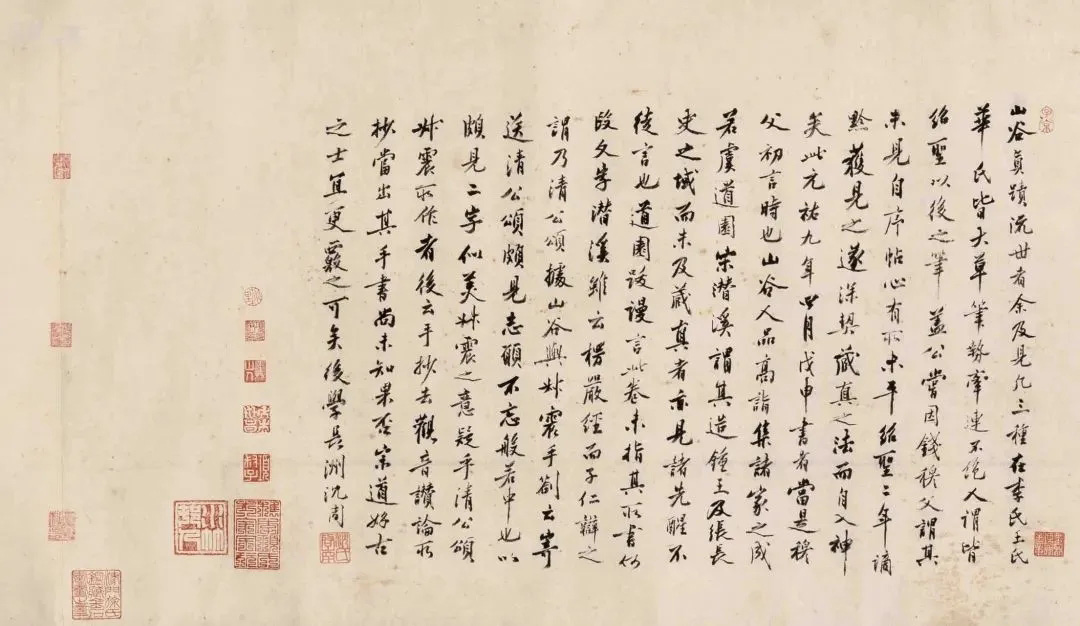 山谷真蹟流世者余及見凡三種在李氏王氏
華氏皆大草筆勢牽連不絶人謂皆
紹聖以後之筆蓋公嘗因錢穆父謂其
未見自序帖心有所未平紹聖二年謫
黔獲見之遂深契藏真之法而自入神
矣此元祐九年四月戊申書者當是穆
父初言時也山谷人品高詣集諸家之成
若虞道園宋潛溪謂其造鍾王及張長
史之域而未及藏真者亦見諸先醒不
徒言也道園跋謾言此卷未指其所書何
段文字潛溪雖云楞嚴經而子仁辯之
謂乃清公頌據山谷與叔震手劄云寄
送清公頌頗見志願不忘般若中也以
頗見二字似美叔震之意疑乎清公頌
叔震所作者後云手抄去觀音讚論所
抄當出其手書尚未知果否宗道好古
之士宜更覈之可矣後學長洲沈周